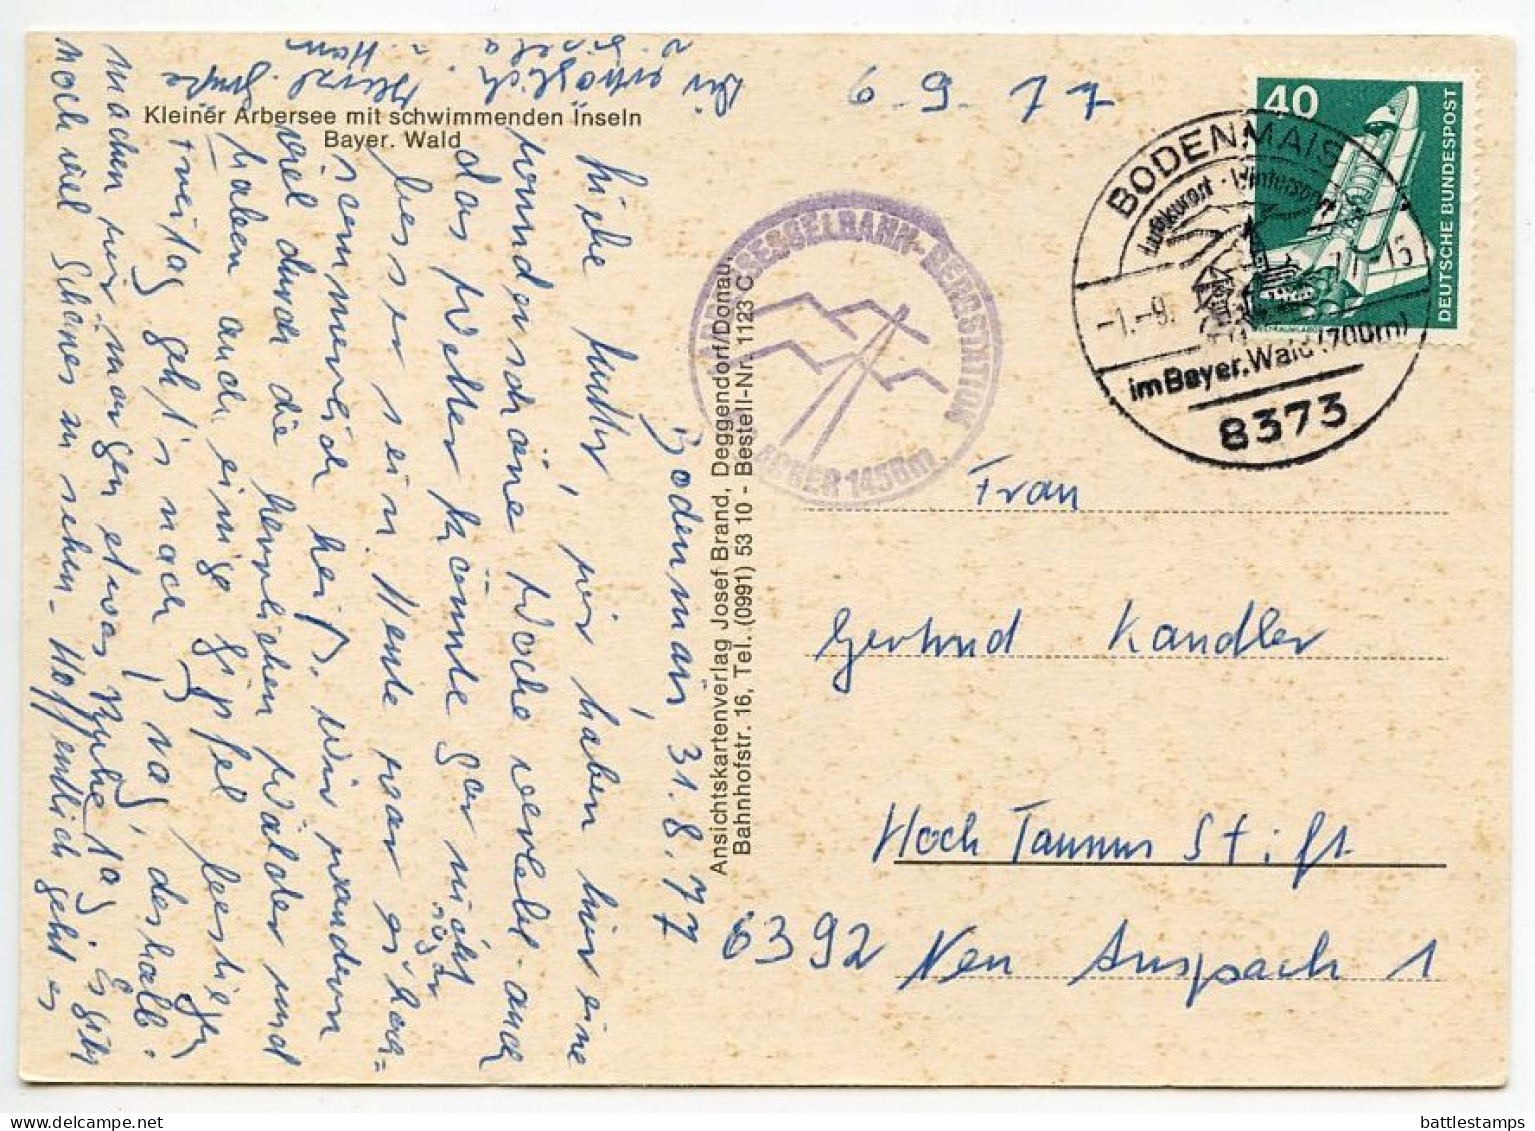 Kleiner Arbersee mit schwimmenden Inseln
Bayer. Wald
Bodenmais, 31.8.77
Liebe Mutter, wir haben hier eine
wunderschöne Woche verlebt - auch
das Wetter könnte gar nicht
besser sein. Heute war es hoch=
sogar
sommerlich heiß. Wir wandern
viel durch die herrlichen Wälder und
haben auch einige Gipfel bestiegen
Freitag geht's nach
machen wir morgen etwas Ruhetag. Es gibt
noch viel Schönes zu sehen - Hoffentlich geht es
Dir erträglich
Herzl. Grüße
6-9-77
Ansichtskartenverlag Josef Brand, Deggendorf/Donau,
Bahnhofstr. 16, Tel. (0991) 53 10 - Bestell-Nr. 1123 C
SESSELBAHN-BERGSTATION
ARBER 1456m
40
DEUTSCHE BUNDESPOST
BODENMAIS
Luftkurort - Wintersport
-1.-9.77-15
im Bayer. Wald (700m)
8373
Frau
Gertrud Kandler
Hoch Taunus Stift
6392 Neu Anspach 1
battlestamps